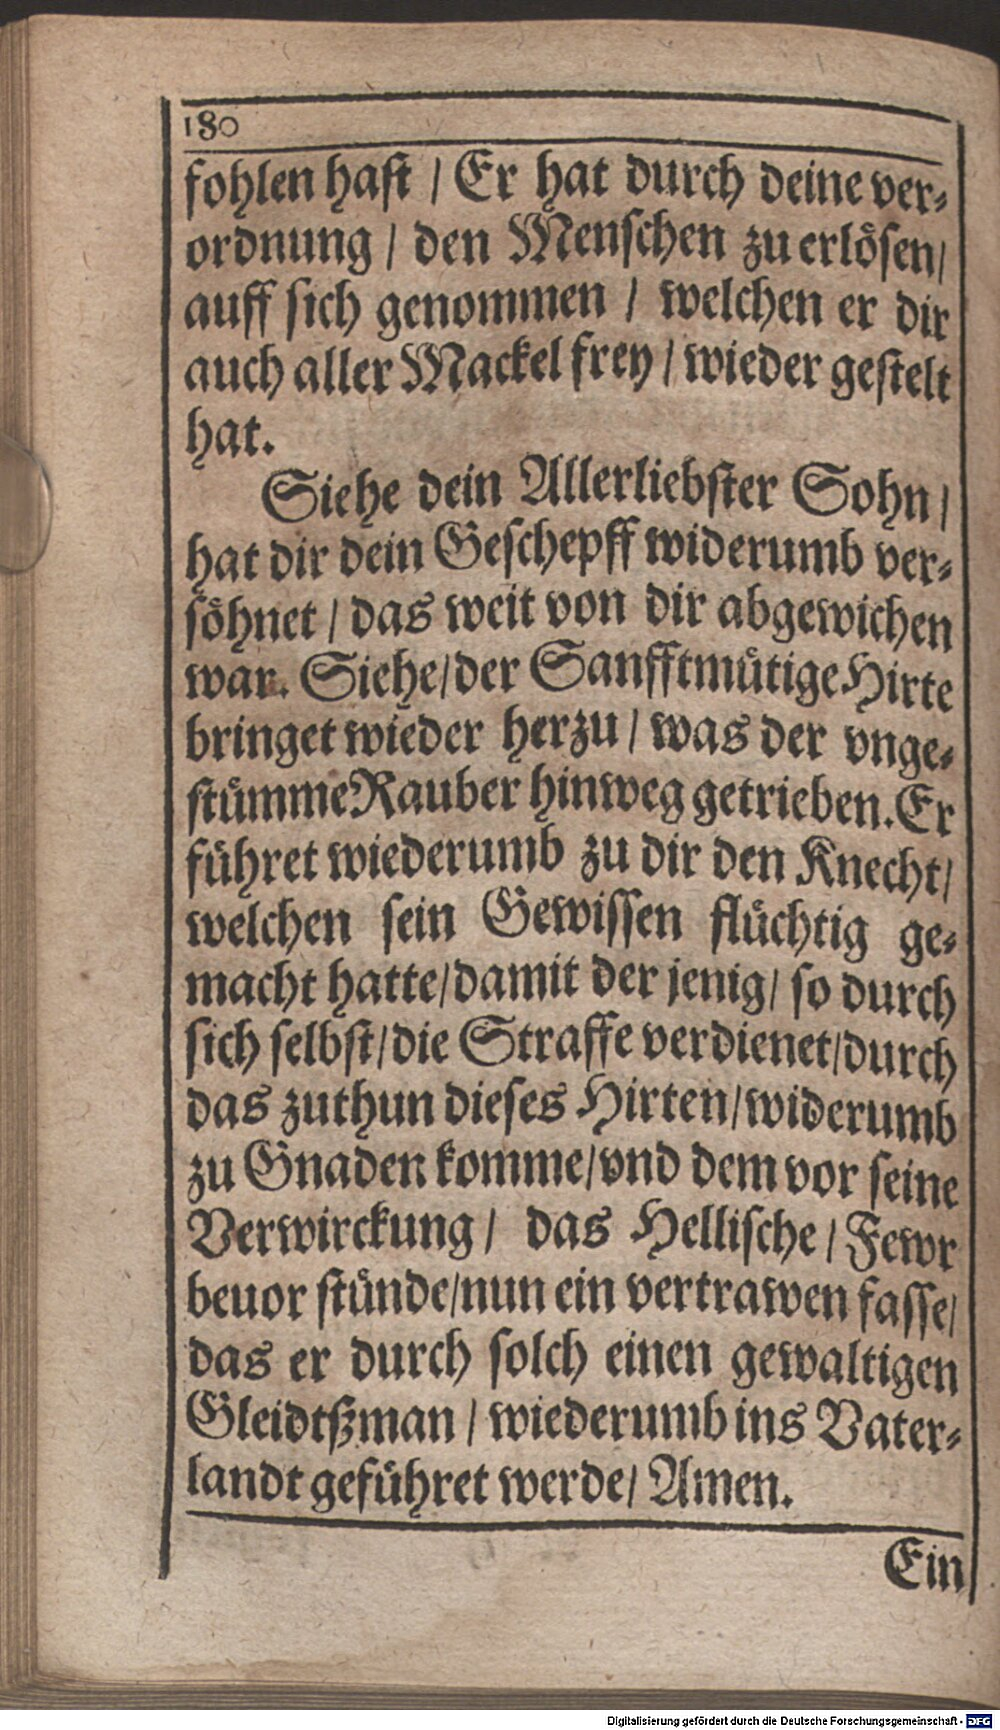 180
fohlen haſt / Er hat durch deine ver⸗
ordnung / den Menſchen zu erlöſen/
auff ſich genommen / welchen er dir
auch aller Mackel frey / wieder geſtelt
hat.
Siehe dein Allerliebſter Sohn /
hat dir dein Geſchepff widerumb ver⸗
ſöhnet / das weit von dir abgewichen
war. Siehe/der Sanfftmütige Hirte
bringet wieder herzu / was der vnge⸗
ſtümme Rauber hinweg getrieben. Er
führet wiederumb zu dir den Knecht/
welchen ſein Gewiſſen flüchtig ge⸗
macht hatte/damit der jenig/ ſo durch
ſich ſelbſt/die Straffe verdienet/durch
das zuthun dieſes Hirten/widerumb
zu Gnaden komme/vnd dem vor ſeine
Verwirckung / das Helliſche / Fewr
beuor ſtünde/nun ein vertrawen faſſe/
das er durch ſolch einen gewaltigen
Gleidtßman / wiederumb ins Vater⸗
landt geführet werde/ Amen.
Ein
Digitalisierung gefördert durch die Deutsche Forschungsgemeinschaft - DFG